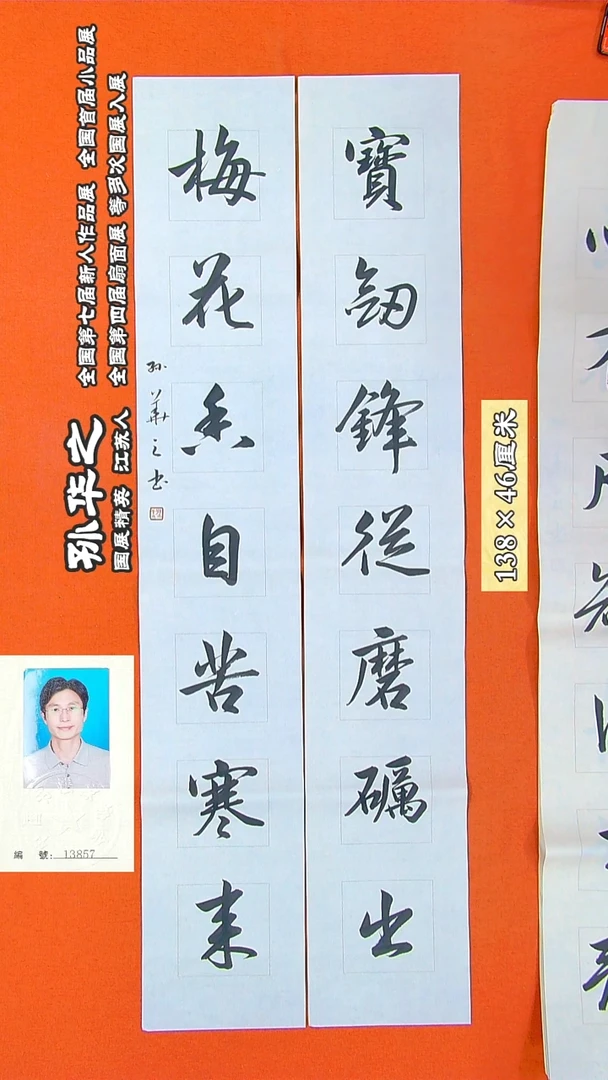 寶劔鋒從磨礪出
梅花香自苦寒来
孙華之书
孙华之
国展精英 江苏人
全国第七届新人作品展 全国首届小品展
全国第四届扇面展 等多次国展入展
138×46厘米
編 號: 13857